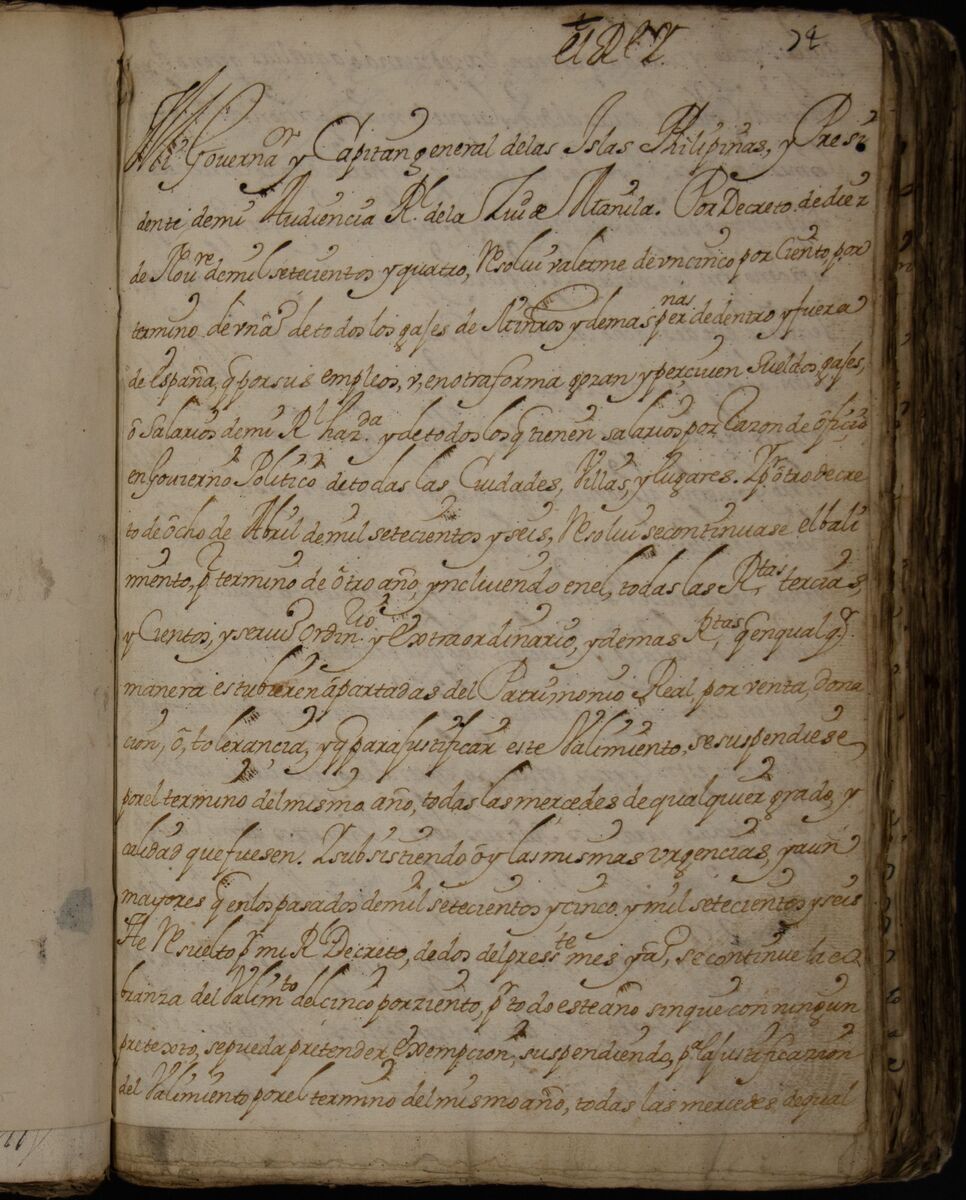 el Rey
74
Mi Governa.or y Capitan general delas Islas Philipinas, y Presi
dente demi Audiencia R.l dela Ziud de Manila. Por Decreto dediez
de Nov.re demil setecientos y quatro, Resolui valerme de vn cinco por Ciento, por
termino de vn a.o de todos los gajes de Ministros y demas per.nas dedentro y fuera
de España, q̃ por sus empleos, v, en otra forma gozan y perçiuen Sueldos gajes,
ô Salarios de mi R.l haz.da y de todos los q̃ tienen salarios por Razon de ôficio
en Govierno Politico de todas las Ciudades, Villas, y lugares. Y p.r ôtro decre
to de ôcho de Abril demil setecientos y seis, Resolui se continuase el bali
miento, p.r termino de ôtro año, yncluiendo en el, todas las R.tas tercias,
y Cientos, y seruiz.o ordin.rio y Extraordinario, y demas R.tas, q̃ en qualq.r
manera estubieren âpartadas del Patrimonio Real, por venta, dona
cion, ô, tolerancia, y q̃ para justificar este Valimiento, se suspendiese,
por el termino del mismo año, todas las mercedes de qualquier grado, y
calidad que fuesen. Y subsistiendo ôy las mismas vrgencias, y aun
mayores q̃ en los pasados demil setecientos y cinco, y mil setecientos y seis
He Resuelto p.r mi R.l Decreto, de dos del press.te mes y a.o, se continue la co
branza del Valim.to del cinco por ziento, p.r todo este año sin que con ningun
pretexto, se pueda pretender, Exempcion, suspendiendo, p.a la justificazion
del Valimiento por el termino del mismo año, todas las mercedes de qual